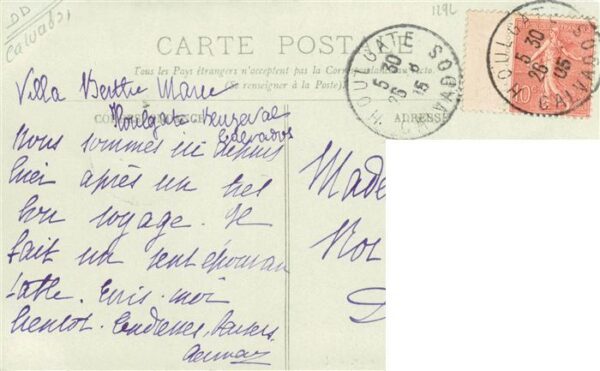 DD
Calvados
1296
CARTE POSTALE
Tous les Pays étrangers n'acceptent pas la Correspondance au recto.
(Se renseigner à la Poste).
HOULGATE CALVADOS
5 30
26
05
HOULGATE CALVADOS
5 30
26
05
10
Villa Berthe Marie
Houlgate Beuzeval
Calvados
ADRESSE
Nous sommes ici depuis
hier après un très
bon voyage. Il
fait un vent épouvan
table. Ecris-moi
bientôt. Tendresses, baisers.
Made